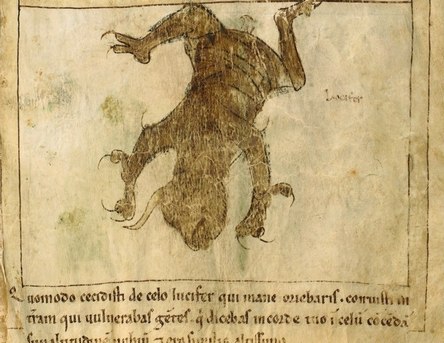 Lucifer
Quomodo cecidisti de celo lucifer qui mane oriebaris. corruisti in
tram qui vulnerabas gẽtes. q̃ dicebas in corde tuo ĩ celũ cõcedã